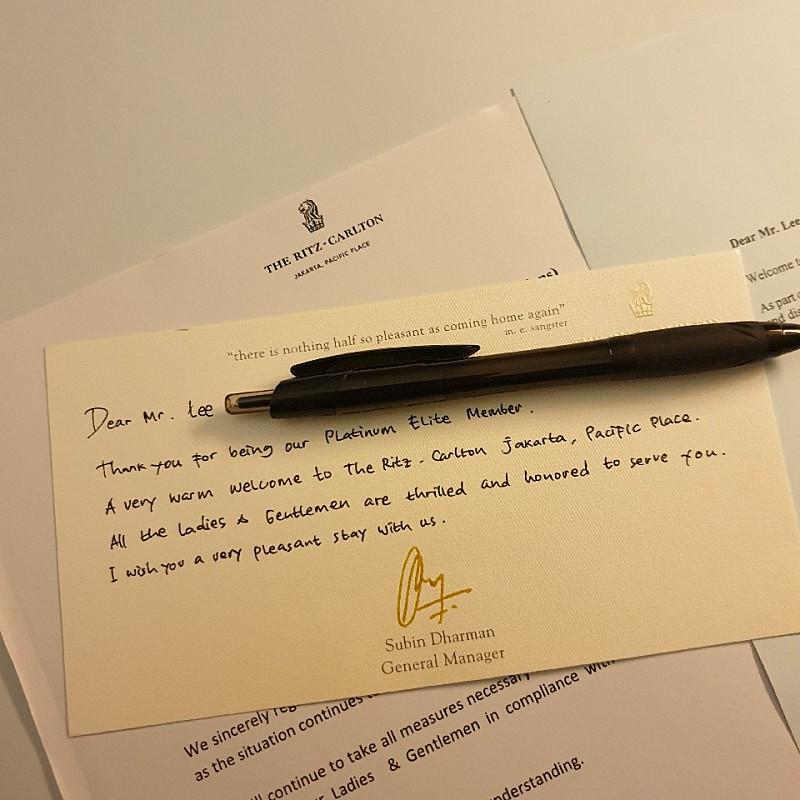 THE RITZ-CARLTON
JAKARTA, PACIFIC PLACE
Dear Mr. Lee
Welcome to
As part
and
"there is nothing half so pleasant as coming home again"
m. e. sangster
Dear Mr. Lee
Thank you for being our Platinum Elite Member.
A very warm welcome to The Ritz-Carlton Jakarta, Pacific Place.
All the Ladies & Gentlemen are thrilled and honored to serve you.
I wish you a very pleasant stay with us.
Subin Dharman
General Manager
We sincerely
as the situation continues
continue to take all measures necessary
Ladies & Gentlemen in compliance with